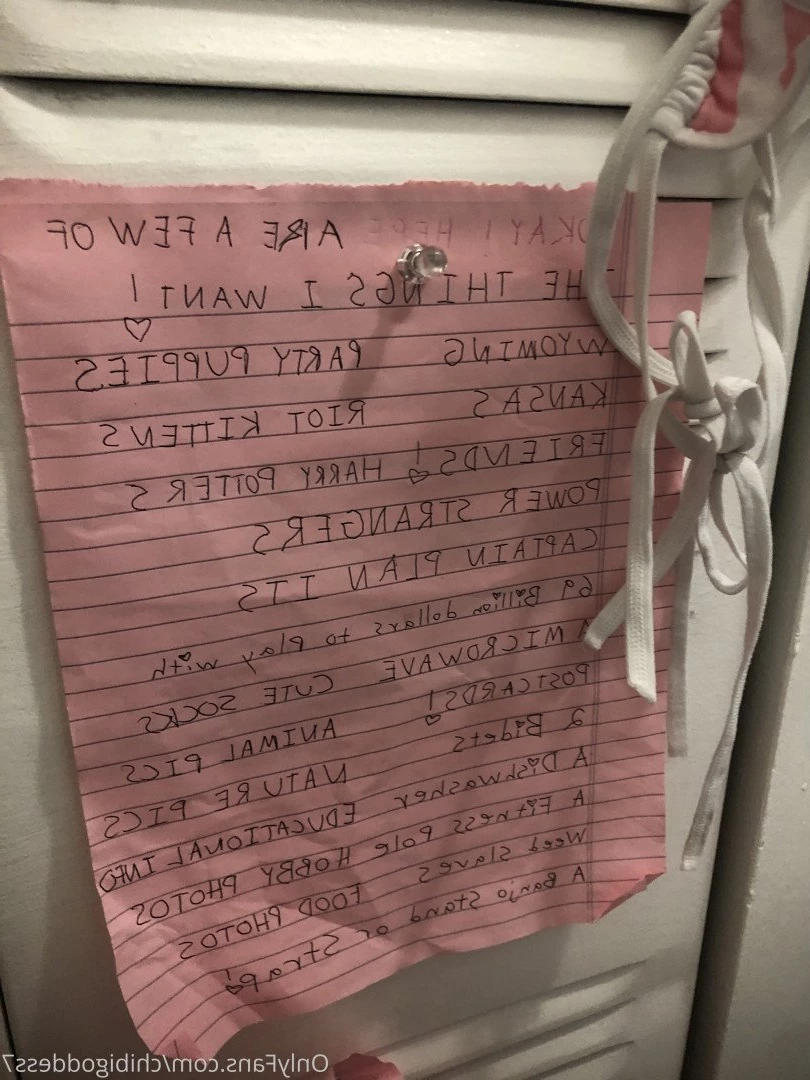 OKAY! HERE ARE A FEW OF
THE THINGS I WANT!
WYOMING PARTY PUPPIES
KANSAS RIOT KITTENS
FRIENDS! HARRY POTTERS
POWER STRANGERS
CAPTAIN PLAN ITS
69 Billion dollars to play with
A MICROWAVE CUTE SOCKS
POSTCARDS! ANIMAL PICS
2 Bidets NATURE PICS
A Dishwasher EDUCATIONAL INFO
A Fitness Pole HOBBY PHOTOS
Weed Slaves FOOD PHOTOS
A Banjo Stand or Strap!
OnlyFans.com/chibigoddess7